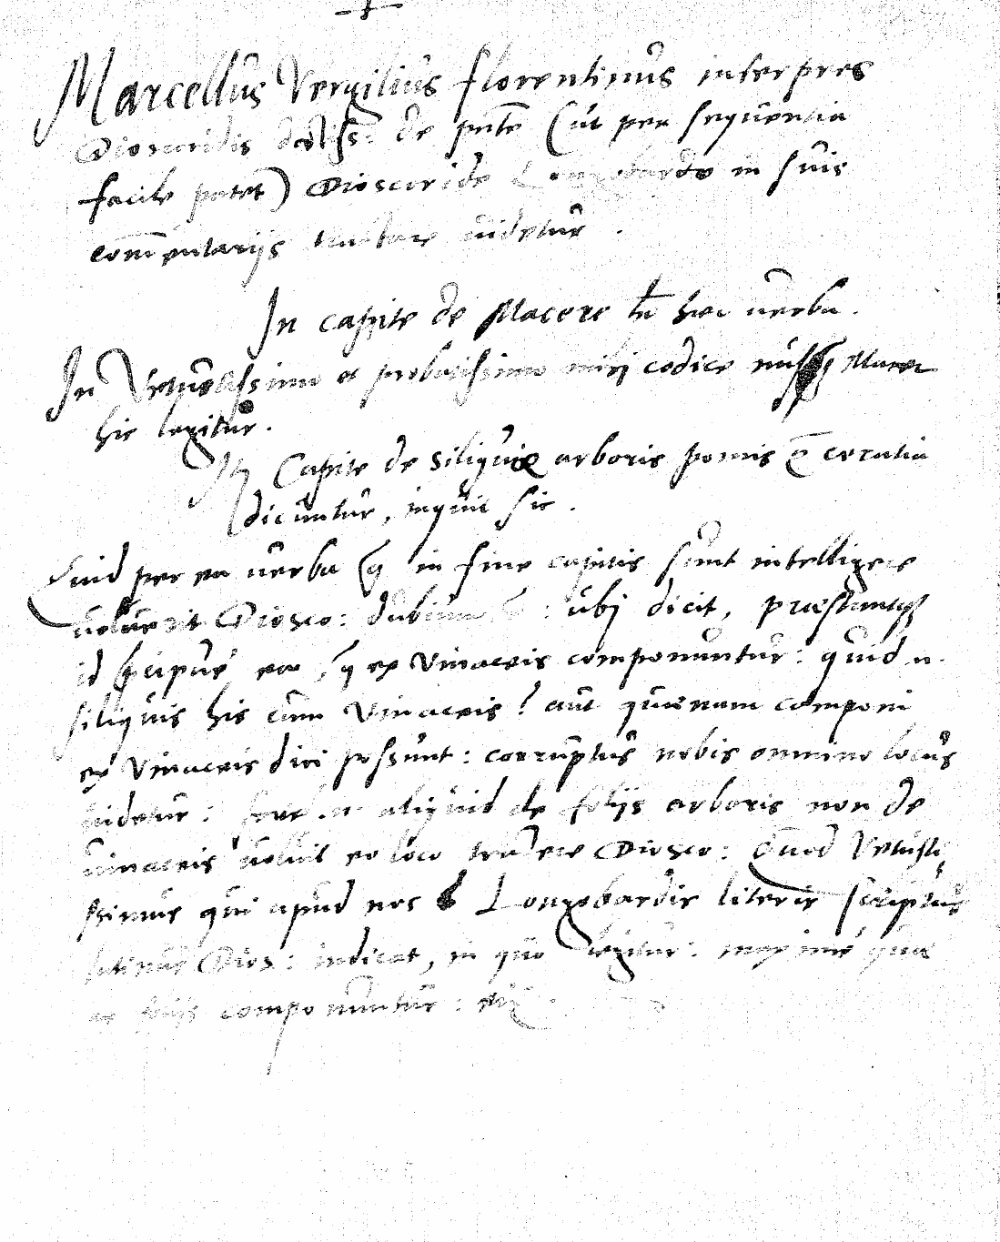 Marcellus Vergilius florentinus interpres
Dioscoridis doctiss: de pñte (ut per sequentia
facile patet) Dioscoride Longobardo in suis
com̃entarijs videtur.
In capite de Macere hec verba.
In Vetustissimo et probatissimo mihi codice Macer
hic legitur.
In Capite de siliquis arboris pomis q̃ ceratia
dicuntur, inquit sic.
Quid per ea verba q̃ in fine capitis sunt intelligere
voluerit Diosco: dubium ẽ: ubj dicit, præstantq
id ea, q̃ ex Vinaceis componuntur: quid n.
siliquis his cum Vinaceis? aut quænam componi
ex Vinaceis dici possunt: corruptus nobis omnino locus
videtur: n. aliquid de folijs arboris non de
vinaceis voluit eo loco tradere Diosco: Quod Vetusti
ssimus qui apud nos Longobardis literis scriptus
latinus Dios: indicat, in quo legitur: maxime quæ
ex folijs componuntur: